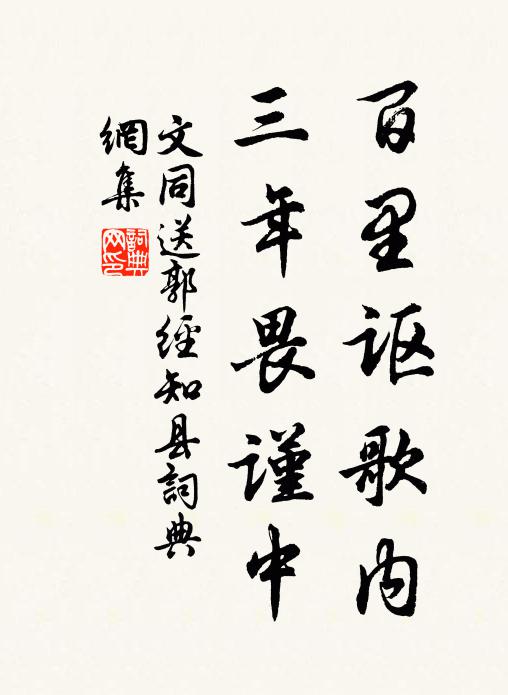 百里讴歌内
三年畏谨中
文同送郭經知县詞典
網集
詞典網印